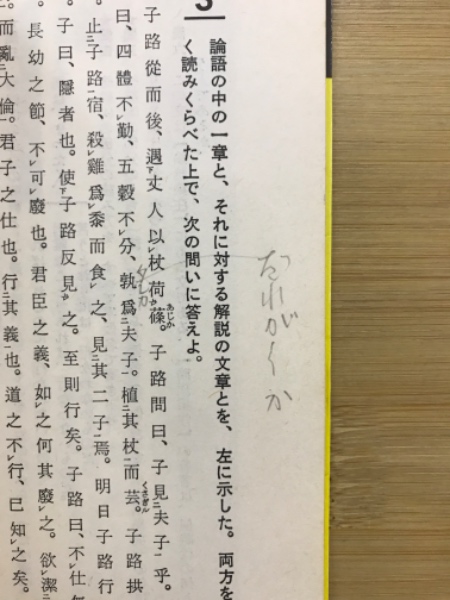 論語の中の一章と、それに対する解説の文章とを、左に示した。両方を
く読みくらべた上で、次の問いに答えよ。
子路從而後、遇丈人以杖荷蓧。子路問曰、子見夫子乎。
あじか
曰、四體不勤、五穀不分、孰爲夫子。植其杖而芸。子路拱
くさぎる
。止子路宿、殺雞爲黍而食之、見其二子焉。明日子路行
。子曰、隱者也。使子路反見之。至則行矣。子路曰、不仕
。長幼之節、不可廢也。君臣之義、如之何其廢之。欲潔
。而亂大倫。君子之仕也。行其義也。道之不行、已知之矣。